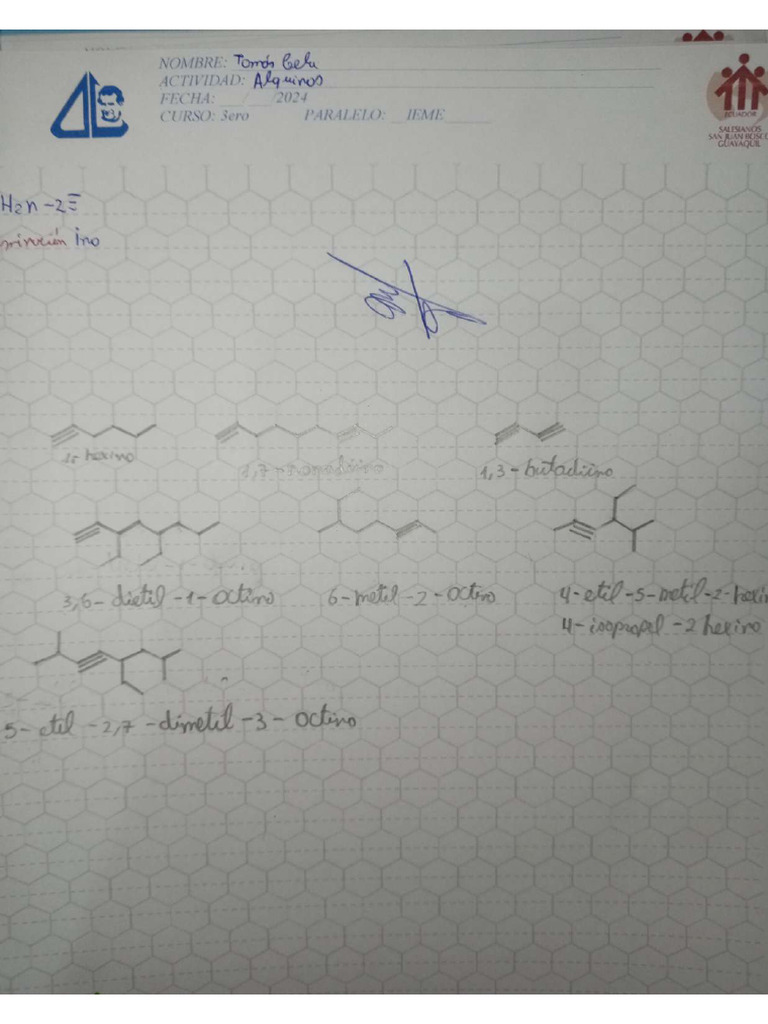 NOMBRE: Tomás Celi
ACTIVIDAD: Alquinos
FECHA: __/__/2024
CURSO: 3ero PARALELO: IEME
ECUADOR
SALESIANOS
SAN JUAN BOSCO
GUAYAQUIL
H2n-2≡
ino
1-hexino
1,3-butadiino
3,6-dietil-1-octino 6-metil-2-octino 4-etil-5-metil-2-hexin
4-isopropel-2 hexino
5-etil-2,7-dimetil-3-octino